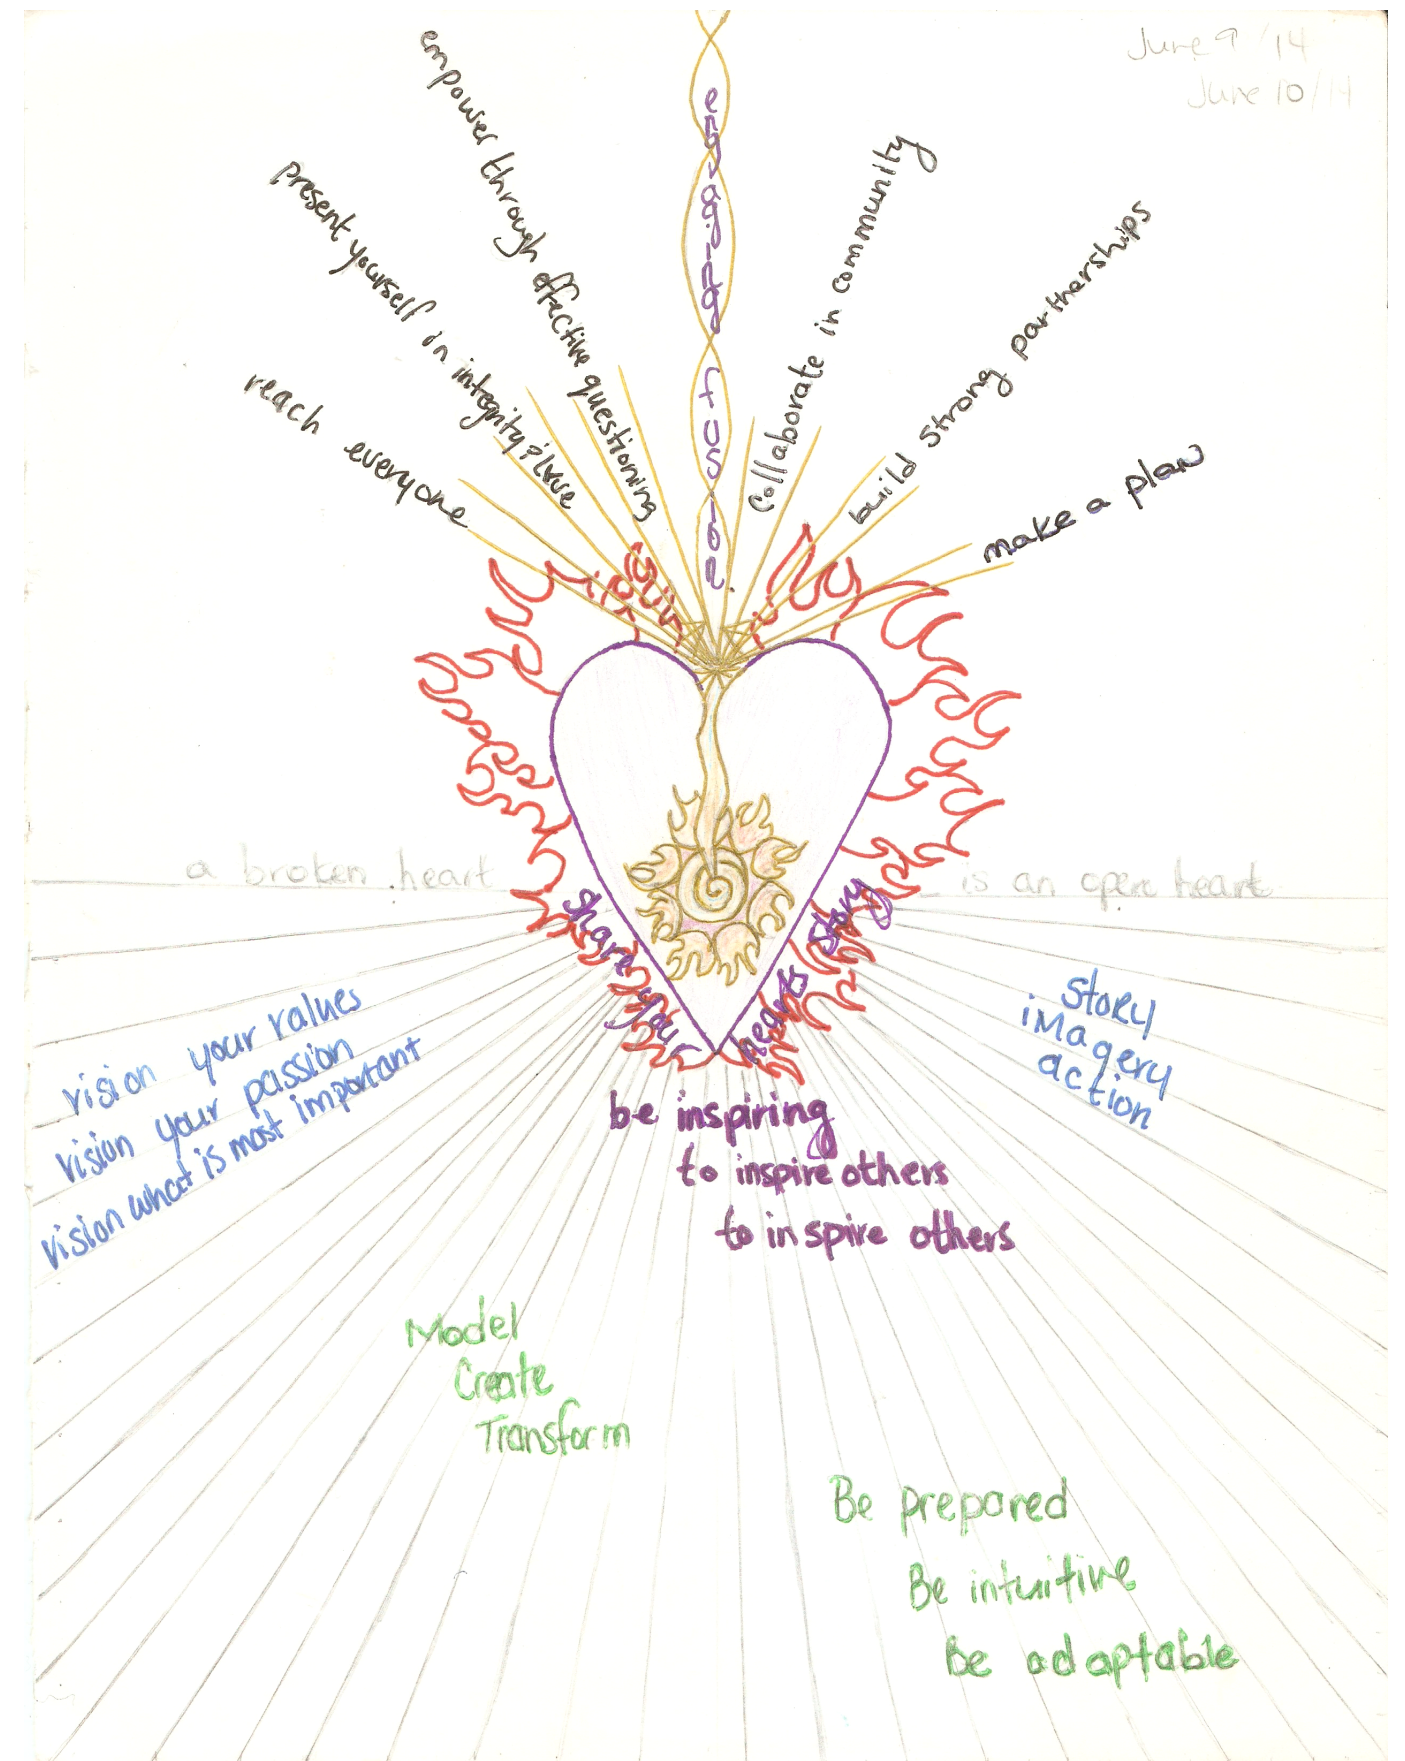 June 9/14
June 10/14
empower through effective questioning
present yourself in integrity & love
reach everyone
engaging fusion
collaborate in community
build strong partnerships
make a plan
a broken heart
is an open heart
share you
hearts story
vision your values
vision your passion
vision what is most important
story
imagery
action
be inspiring
to inspire others
to inspire others
Model
Create
Transform
Be prepared
Be intuitive
Be adaptable